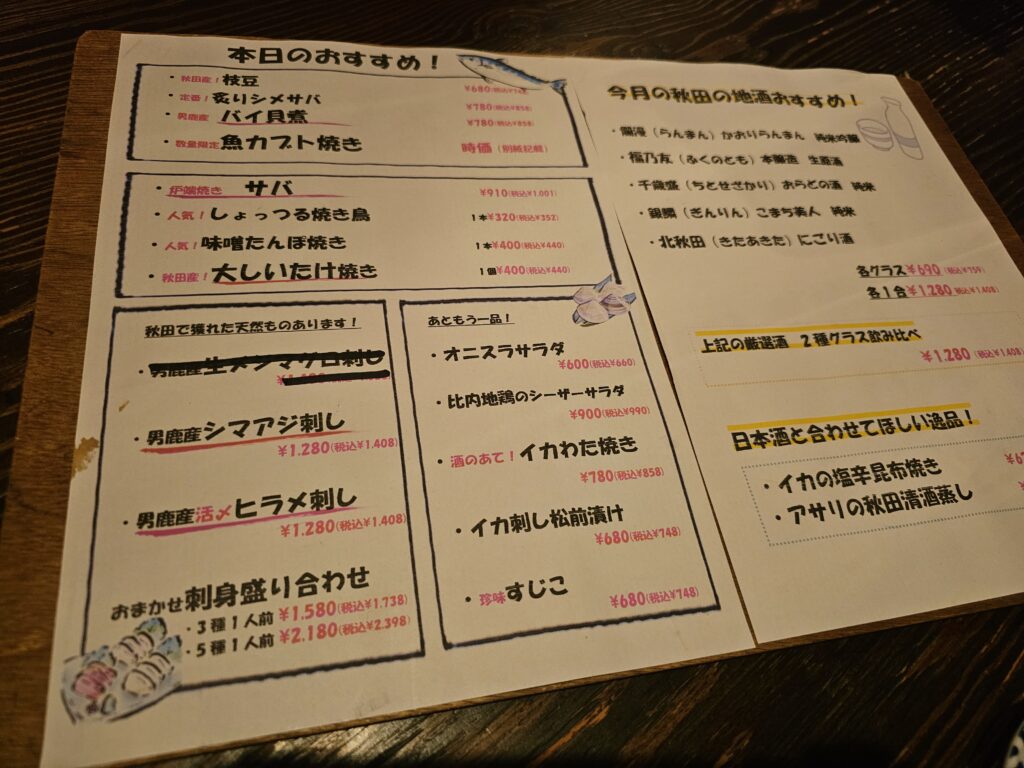 本日のおすすめ!
・秋田産!枝豆 ¥680(税込¥748)
・定番!炙りシメサバ ¥780(税込¥858)
・男鹿産 バイ貝煮 ¥780(税込¥858)
・数量限定 魚カブト焼き 時価(別紙記載)
・炉端焼き サバ ¥910(税込¥1.001)
・人気!しょっつる焼き鳥 1本¥320(税込¥352)
・人気!味噌たんぽ焼き 1本¥400(税込¥440)
・秋田産!大しいたけ焼き 1個¥400(税込¥440)
秋田で獲れた天然ものあります!
・男鹿産シマアジ刺し
¥1.280(税込¥1.408)
・男鹿産活〆ヒラメ刺し
¥1.280(税込¥1.408)
おまかせ刺身盛り合わせ
・3種1人前 ¥1.580(税込¥1.738)
・5種1人前 ¥2.180(税込¥2.398)
あともう一品!
・オニスラサラダ
¥600(税込¥660)
・比内地鶏のシーザーサラダ
¥900(税込¥990)
・酒のあて!イカわた焼き
¥780(税込¥858)
・イカ刺し松前漬け
¥680(税込¥748)
・珍味 すじこ
¥680(税込¥748)
今月の秋田の地酒おすすめ!
・爛漫(らんまん)かおりらんまん 純米吟醸
・福乃友(ふくのとも)本醸造 生原酒
・千歳盛(ちとせざかり)おらどの酒 純米
・銀鱗(ぎんりん)こまち美人 純米
・北秋田(きたあきた)にごり酒
各グラス¥690(税込¥759)
各1合¥1.280(税込¥1.408)
上記の厳選酒 2種グラス飲み比べ
¥1.280(税込¥1.408)
日本酒と合わせてほしい逸品!
・イカの塩辛昆布焼き
・アサリの秋田清酒蒸し